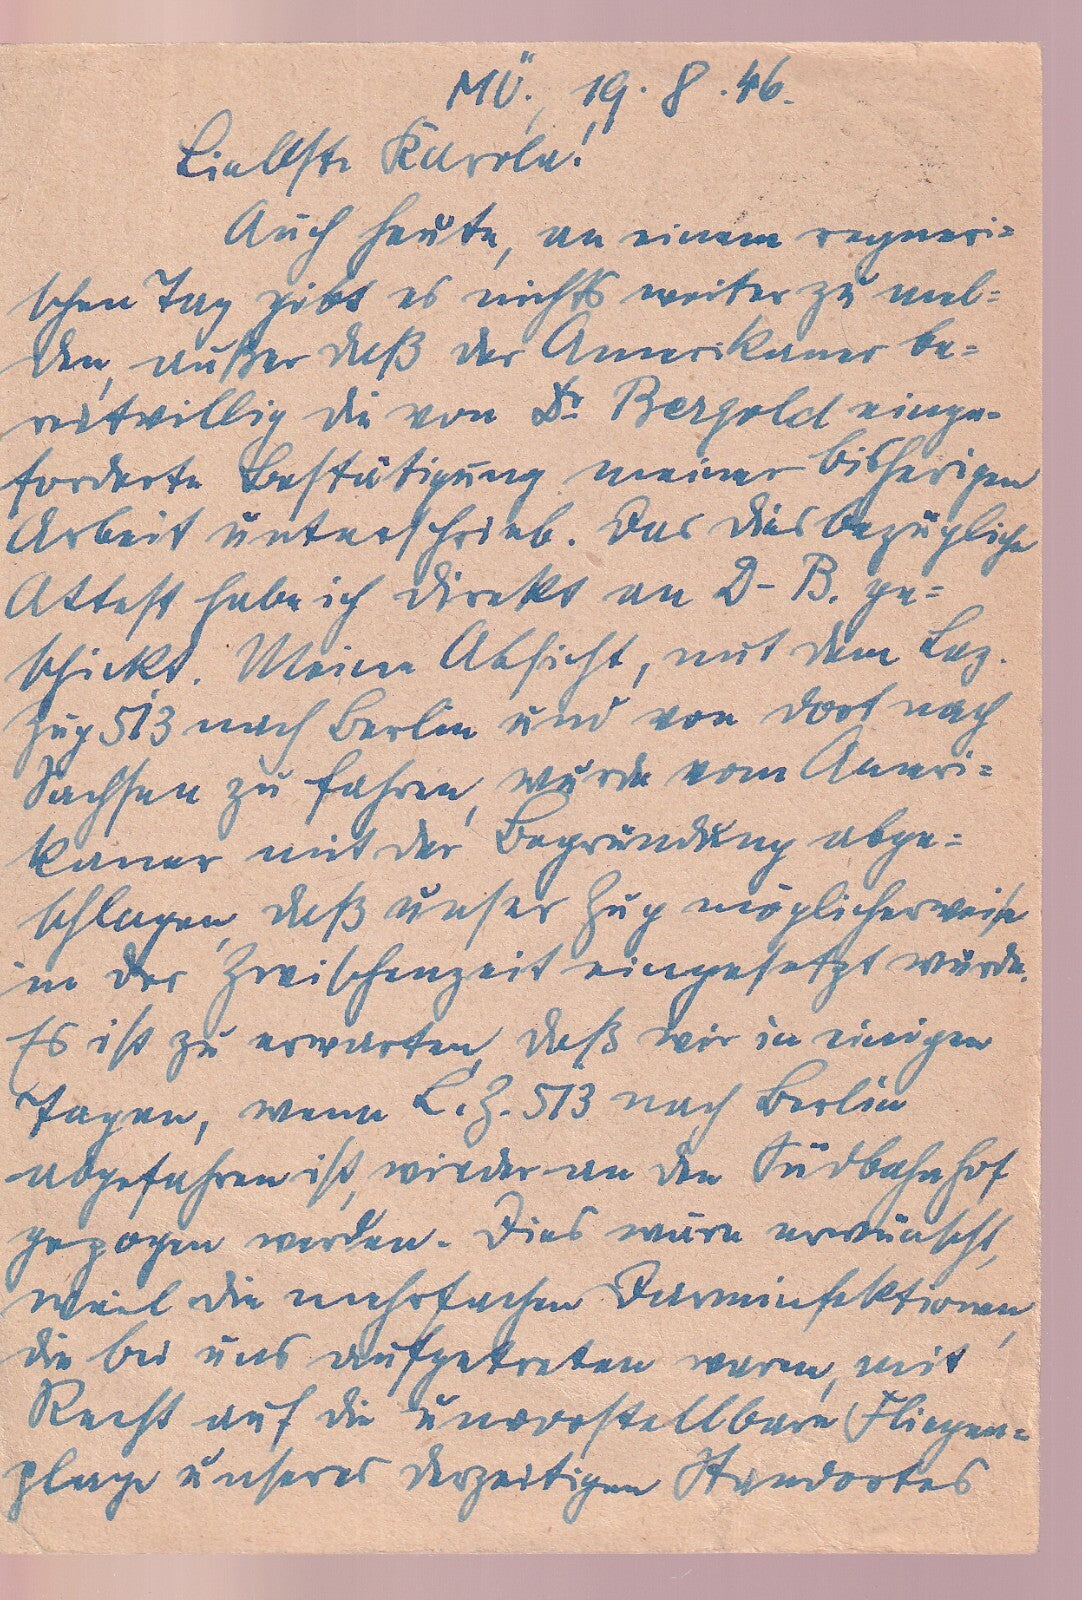 MÜ., 19. 8. 46.
Liebste Karola!
Auch heute, an einem regneri=
schen Tag gibt es nichts weiter zu mel=
den, außer daß der Amerikaner be=
reitwillig die von Dr. Bergold einge=
forderte Bestätigung meiner bisherigen
Arbeit unterschrieb. Das diesbezügliche
Attest habe ich direkt an D- B. ge=
schickt. Meine Absicht, mit dem Laz.
Zug 513 nach Berlin und von dort nach
Sachsen zu fahren, wurde vom Ameri=
kaner mit der Begründung abge=
schlagen, daß unser Zug möglicherweise
in der Zwischenzeit eingesetzt würde.
Es ist zu erwarten, daß wir in einigen
Tagen, wenn L. Z. 513 nach Berlin
abgefahren ist, wieder an den Südbahnhof
gezogen werden. Dies wäre erwünscht,
weil die mehrfachen Darminfektionen,
die bei uns aufgetreten waren, mit
Recht auf die unvorstellbare Fliegen=
plage unseres derzeitigen Standortes